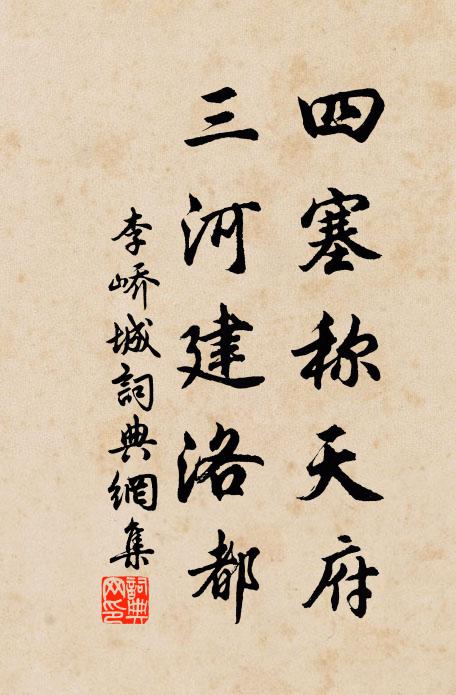 四塞称天府
三河建洛都
李峤城詞典網集
詞典網印